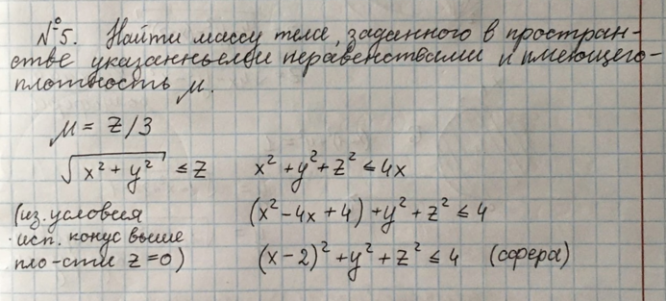 №5. Найти массу тела, заданного в простран-
стве указанными неравенствами и имеющего
плотность μ.
μ = z/3
√(x² + y²) ≤ z    x² + y² + z² ≤ 4x
(из условия    (x² - 4x + 4) + y² + z² ≤ 4
исп. конус выше
пло-сти z = 0)    (x - 2)² + y² + z² ≤ 4    (сфера)